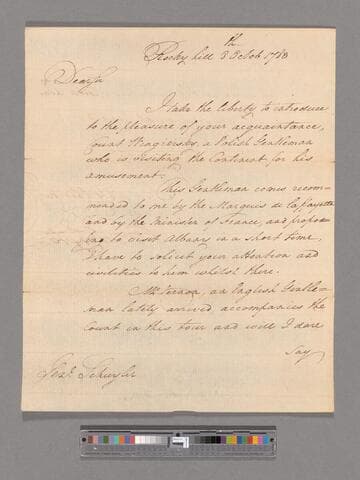 Rocky hill 8th Octob. 1783
Dear Sir
I take the liberty to introduce
to the pleasure of your acquaintance,
Count Wragiersky, a Polish Gentleman
who is visiting the Continent for his
amusement.
This Gentleman comes recom-
mended to me by the Marquis de la fayette
and by the Minister of France, and propo-
sing to visit Albany in a short time,
I have to solicit your attention and
civilities to him whilst there.
Mr. Vernon, an English Gentle-
man lately arrived accompanies the
Count in this tour and will I dare
say
Genl. Schuyler